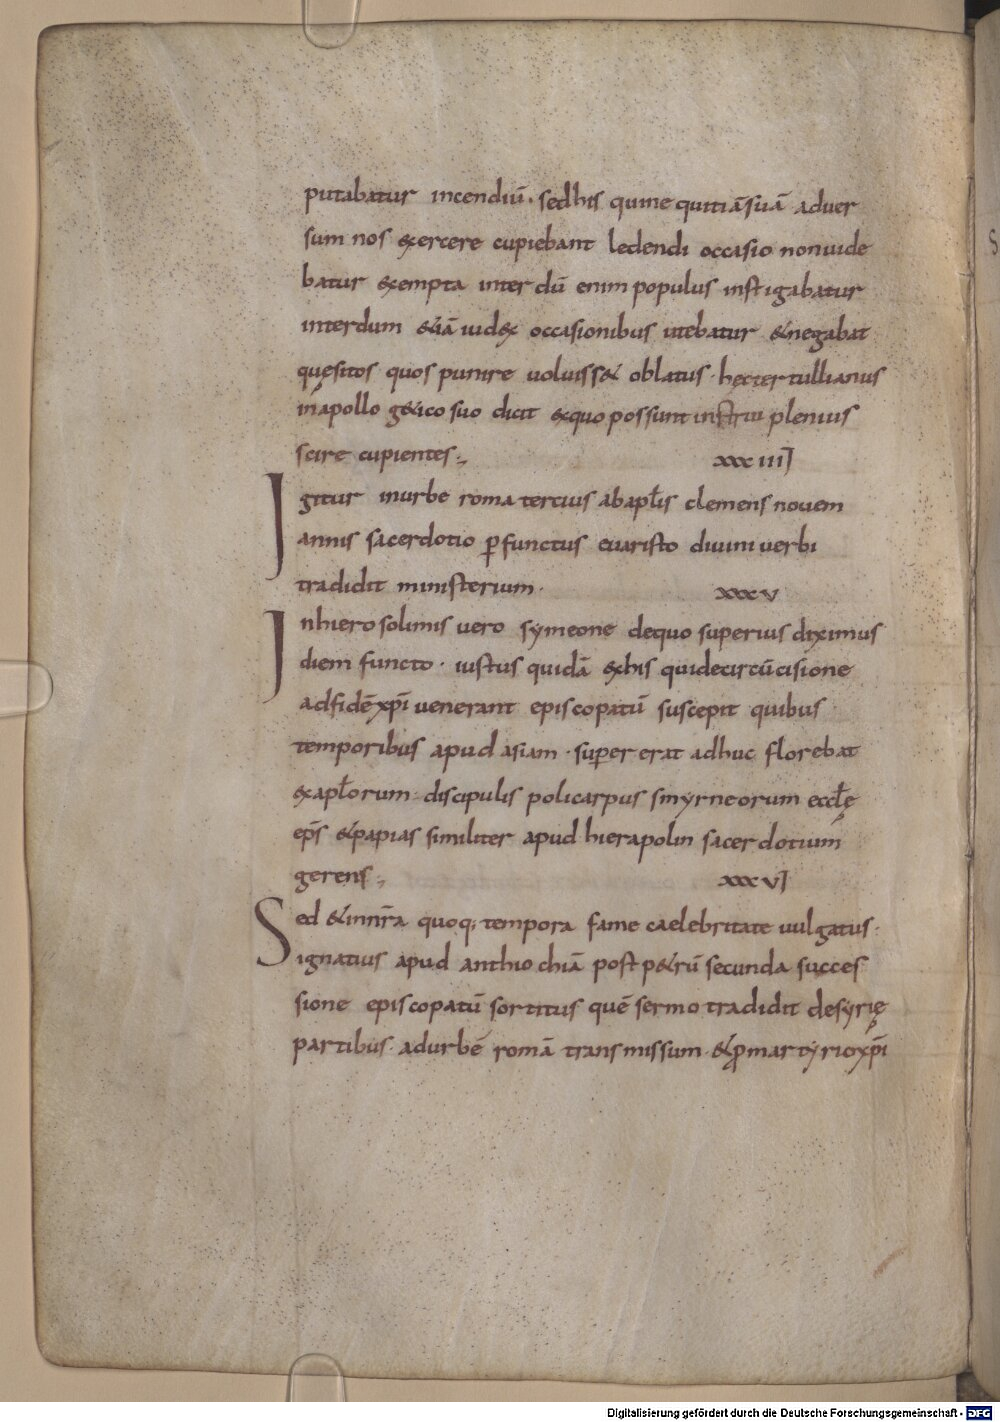 putabatur incendiū · sedhis quine quitiāsuā aduer
sum nos &xercere cupiebant ledendi occasio nonuide
batur &xempta interdū enim populus instigabatur
interdum &iā iud&x occasionibus utebatur &negabat
quęsitos quos punire uoluiss& oblatus · hęc tertullianus
inapollog&ico suo dicit exquo possunt plenius
scire cupientes ;
xxxiiii
Igitur inurbe roma tercius abapłis clemens nouem
annis sacerdotio ꝑfunctus euaristo diuini uerbi
tradidit ministerium ·
xxxv
Inhierosolimis uero symeone dequo superius diximus
diem functo · iustus quidā exhis quidecircūcisione
adfidēxp̄i uenerant episcopatū suscepit quibus
temporibus apud asiam · super erat adhuc florebat
&xapłorum discipulis policarpus smyrneorum eccłę
ep̄s &papias similiter apud hierapolin sacerdotium
gerens ;
xxxvi
Sed &innr̄a quoq; tempora fame caelebritate uulgatus ·
ignatius apud anthiochiā post p&rū secunda succes
sione episcopatū sortitus quē sermo tradidit desyrię
partibus · adurbē romā transmissum · &ꝓmartyrioxp̄i
Digitalisierung gefördert durch die Deutsche Forschungsgemeinschaft - DFG